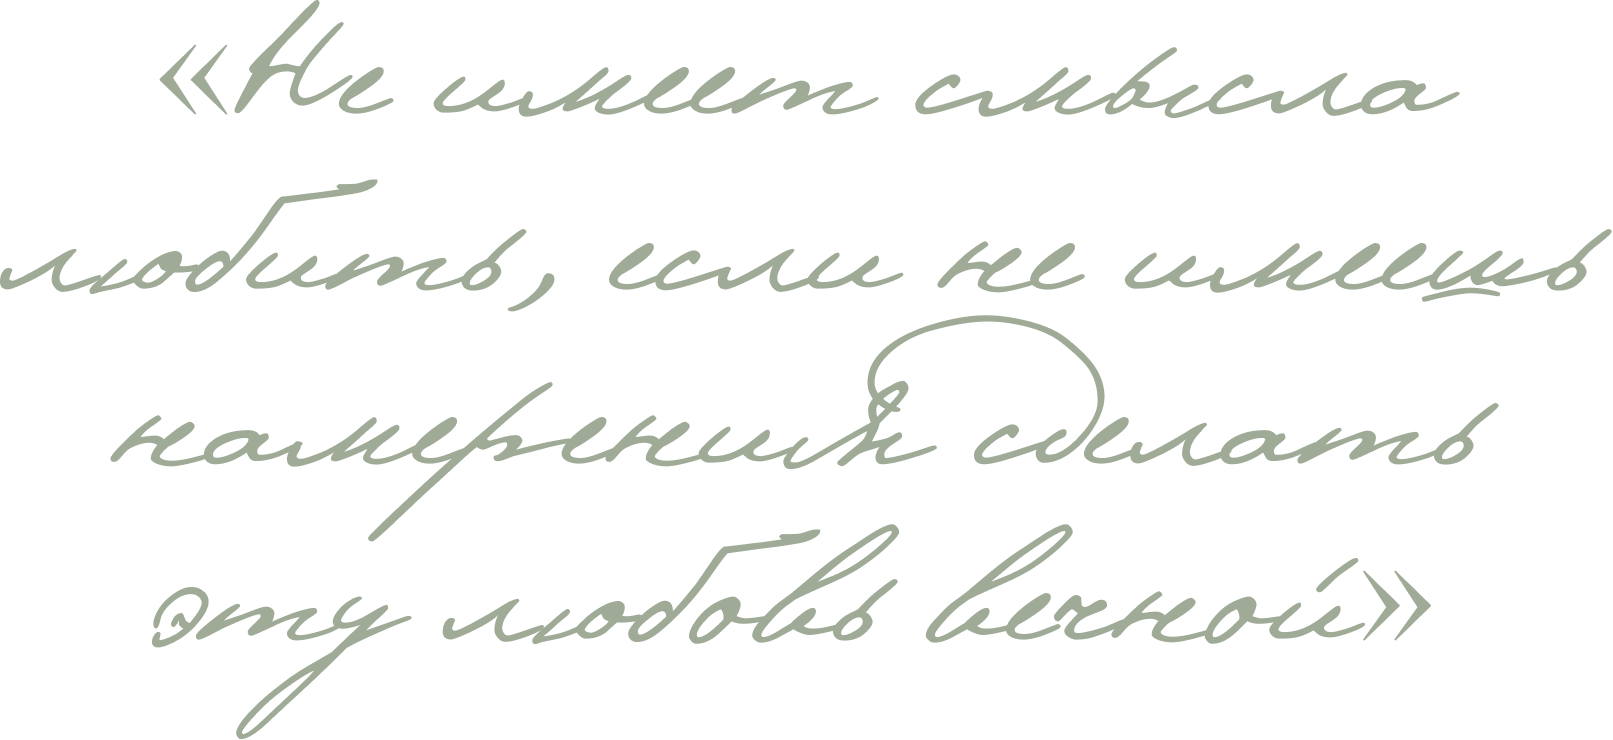 «Не имеет смысла
любить, если не имеешь
намерения сделать
эту любовь вечной»